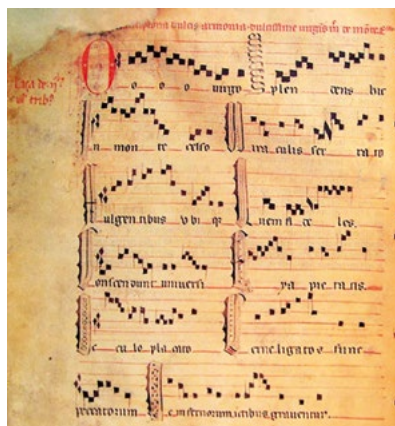 dulcis armonia dulcissime uirgis
O o o o uirgo plen dens hic
n mon te celso iraculis ser ra to
ulgentibus vbi q nem fi de les.
onscendunt universi ya pie ta tis.
c cu lo pla cato erne ligatos fune
peccatorum e infernorum ictibus graventur.